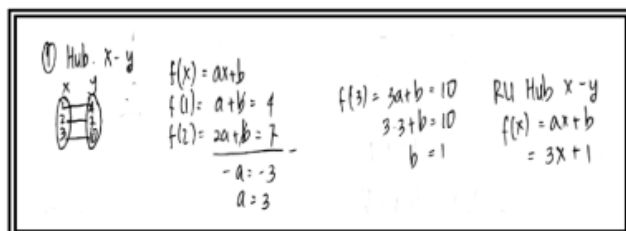 ① Hub. x - y
x y
1 4
2 7
3 10
f(x) = ax+b
f(1) = a+b = 4
f(2) = 2a+b = 7 -
-a = -3
a = 3
f(3) = 3a+b = 10
3·3+b = 10
b = 1
RU Hub x - y
f(x) = ax+b
= 3x + 1